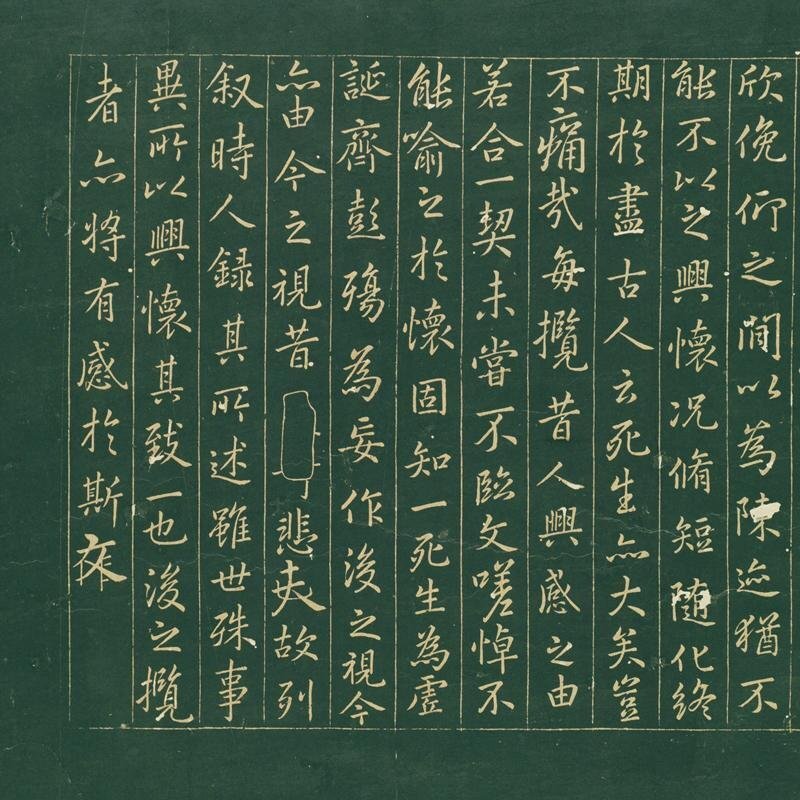 欣俛仰之間以為陳迹猶不
能不以之興懷况脩短随化終
期於盡古人云死生亦大矣豈
不痛哉每攬昔人興感之由
若合一契未嘗不臨文嗟悼不
能喻之於懷固知一死生為虗
誕齊彭殤為妄作後之視今
亦由今之視昔悲夫故列
叙時人録其所述雖世殊事
異所以興懷其致一也後之攬
者亦将有感於斯